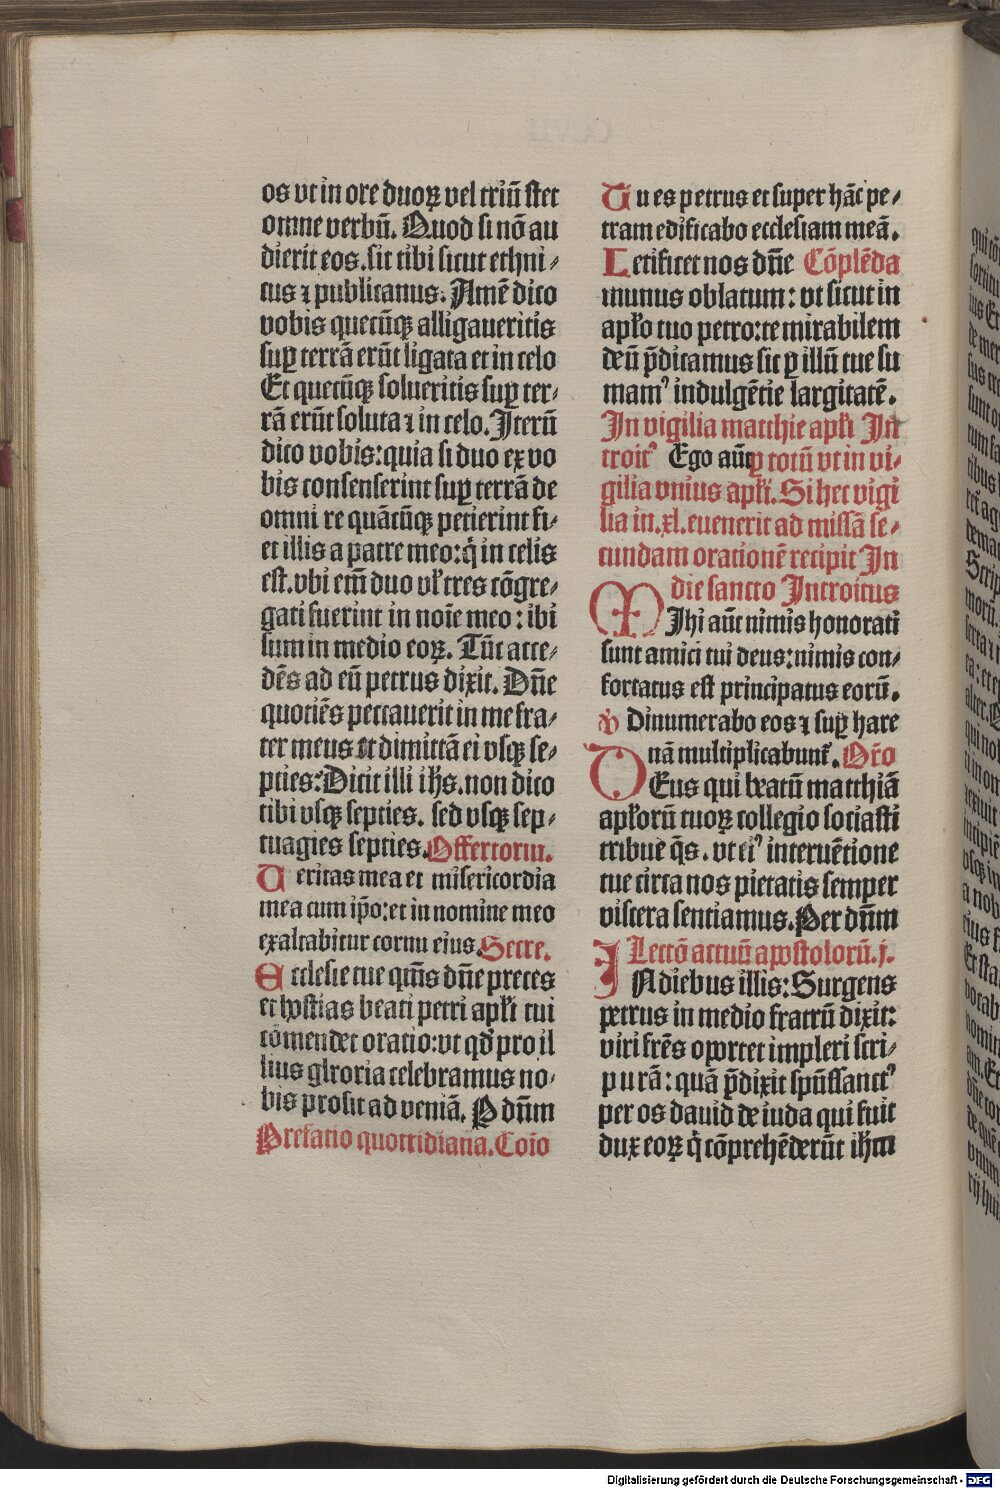 os vt in ore duoꝝ vel triū stet
omne verbū. Quod si nō au
dierit eos. sit tibi sicut ethni⸗
cus ⁊ publicanus. Amē dico
vobis quecūqꝫ alligaueritis
suꝑ terrā erūt ligata et in celo
Et quecūqꝫ solueritis suꝑ ter⸗
rā erūt soluta ⁊ in celo. Iterū
dico vobis: quia si duo ex vo
bis consenserint suꝑ terrā de
omni re quācūqꝫ petierint fi⸗
et illis a patre meo: q̇ in celis
est. vbi em̄ duo vl̓ tres cōgre⸗
gati fuerint in noīe meo: ibi
sum in medio eoꝝ. Tūc acce⸗
dēs ad eū petrus dixit. Dn̄e
quotiēs peccauerit in me fra⸗
ter meus et dimittā ei vsqꝫ se⸗
pties: Dicit illi ih̄s. non dico
tibi vsqꝫ septies. sed vsqꝫ sep⸗
tuagies septies. Offertoriu.
Veritas mea et misericordia
mea cum ip̄o: et in nomine meo
exaltabitur cornu eius. Secre.
Ecclesie tue qm̄s dn̄e preces
et hostias beati petri apl̓i tui
cōmendet oratio: vt qd̓ pro il
lius glroria celebramus no⸗
bis prosit ad veniā. P dn̄m
Prefatio quottidiana. Coīo
Tu es petrus et super hāc pe⸗
tram edificabo ecclesiam meā.
Letificet nos dn̄e Cōplēda
munus oblatum: vt sicut in
apl̓o tuo petro: te mirabilem
deū p̄dicamus sic ꝑ illū tue su
mamꝰ indulgētie largitatē.
In vigilia matthie apl̓i In
troitꝰ Ego aūt ꝑ totū vt in vi⸗
gilia vnius apl̓i. Si hec vigi
lia in .xl. euenerit ad missā se⸗
cundam orationē recipit In
die sancto Introitus
MIhi aūt nimis honorati
sunt amici tui deus: nimis con⸗
fortatus est principatus eorū.
℣ Dinumerabo eos ⁊ suꝑ hare
nā multiplicabunt̓. Or̄o
DEus qui beatū matthiā
apl̓orū tuoꝝ collegio sociasti
tribue q̄s. vt eiꝰ interuētione
tue circa nos pietatis semper
viscera sentiamus. Per dn̄m
Lectō actuū apostolorū. j.
IN diebus illis: Surgens
petrus in medio fratrū dixit:
viri frēs oportet impleri scri⸗
purā: quā p̄dixit spūssanctꝰ
per os dauid de iuda qui fuit
dux eoꝝ q̇ cōprehēderūt ihm
Digitalisierung gefördert durch die Deutsche Forschungsgemeinschaft - DFG